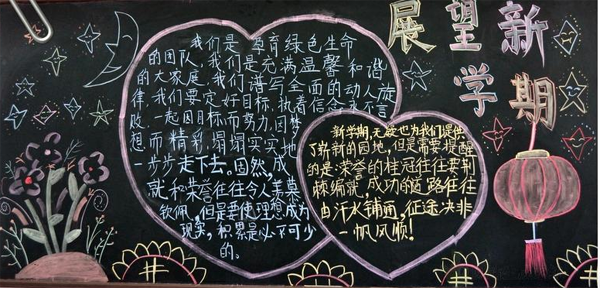 展望新学期
我们是孕育绿色生命
的团队,我们是充满温馨和谐
的大家庭,我们谱写全面的动人旋
律,我们要定好目标,执着信念永不言
败,一起因目标而努力,因梦
想而精彩,塌塌实实地
一步步走下去。固然,成
就和荣誉往往令人羡慕
钦佩,但是要使理想成为
现实,积累是必不可少
的。
新学期,无疑也为我们提供
了崭新的园地,但是需要提醒
的是:荣誉的桂冠往往要荆
棘编就,成功的道路往往
由汗水铺通,征途决非
一帆风顺!